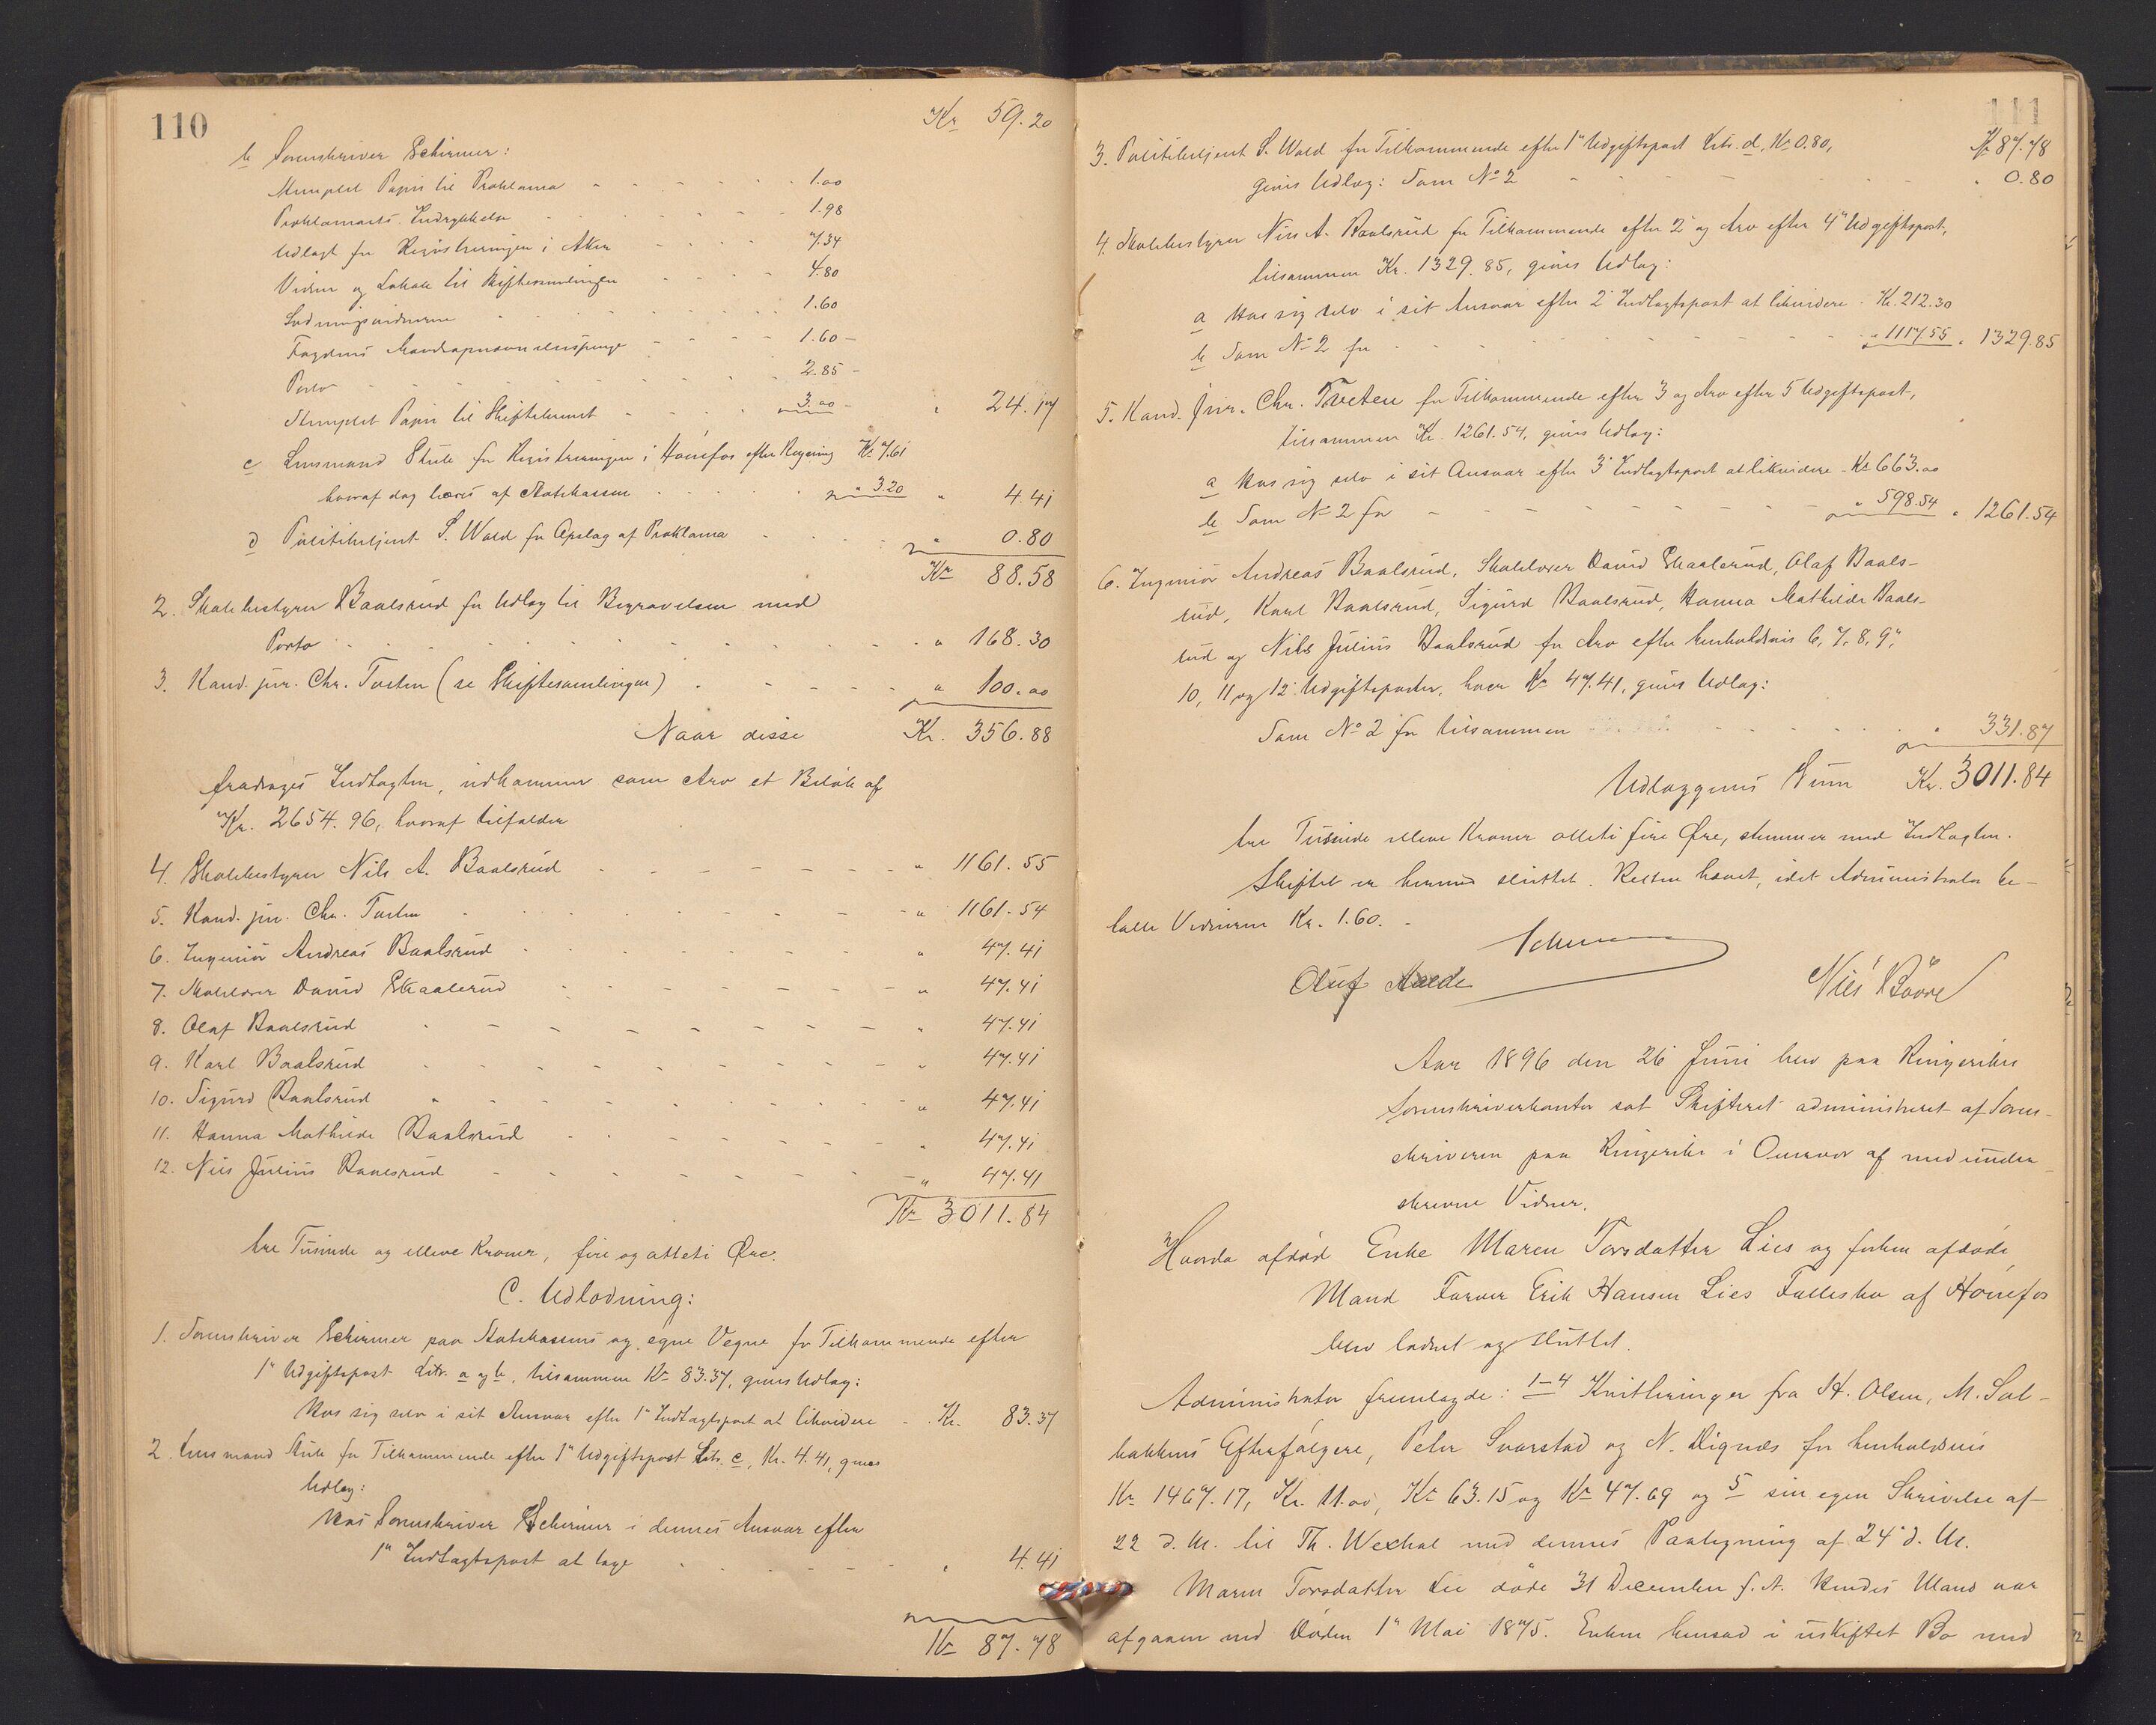 110
Kr 59.20
b Sorenskriver Schirmer:
Stemplet Papir til Proklama - - - 1.00
Proklamaets Indrykkelse - - - 1.98
Udlagt for Registreringen i Aker - - - 7.34
Vidner og Lokale til Skiftesamlingen - - - 4.80
Lodningsvidnerne - - - 1.60
Fogdens Mandtapenavnelsespenge - - - 1.60 -
Porto - - - 2.85 -
Stemplet Papir til Skiftebrevet - - - 3.00 - " 24.17
c Lensmand Stub for Registreringen i Hønefos efter Regning Kr 7.61
hvoraf dog bæres af Statskassen - - - " 3.20 " 4.41
d Politibetjent S. Wold for Opslag af Proklama - - - " 0.80
Kr 88.58
2. Skolebestyrer Baalsrud for Udlæg til Begravelsen med
Porto - - - " 168.30
3. Kand. jur. Chr. Tveten (se Skiftesamlingen) - - - " 100.00
Naar disse Kr. 356.88
fradrages Indtægten, udkommer som Arv et Beløb af
Kr. 2654.96, hvoraf tilfalder
4. Skolebestyrer Nils A. Baalsrud - - - " 1161.55
5. Kand. jur. Chr. Tveten - - - " 1161.54
6. Ingeniør Andreas Baalsrud - - - " 47.41
7. Skolelærer David Skaalerud - - - " 47.41
8. Olaf Baalsrud - - - " 47.41
9. Karl Baalsrud - - - " 47.41
10. Sigurd Baalsrud - - - " 47.41
11. Hanna Mathilde Baalsrud - - - " 47.41
12. Nils Julius Baalsrud - - - " 47.41
Kr 3011.84
tre Tusinde og elleve Kroner, fire og otteti Øre.
C. Udlodning:
1. Sorenskriver Schirmer paa Statskassens og egne Vegne for Tilkommende efter
1ste Udgiftspost Litr. a og b, tilsammen Kr 83.37, gives Udlæg:
Hos sig selv i sit Ansvar efter 1ste Indtægtspost at likvidere - Kr. 83.37
2. Lensmand Stub for Tilkommende efter 1ste Udgiftspost Litr. c, Kr. 4.41, gives
Udlæg:
Hos Sorenskriver Schirmer i dennes Ansvar efter
1ste Indtægtspost at tage - - - " 4.41
Kr 87.78
111
Kr 87.78
3. Politibetjent S. Wold for Tilkommende efter 1ste Udgiftspost Litr. d, Kr 0.80,
gives Udlæg: Som No 2 - - - " 0.80
4. Skolebestyrer Nils A. Baalsrud for Tilkommende efter 2 og Arv efter 4de Udgiftspost,
tilsammen Kr. 1329.85, gives Udlæg:
a Hos sig selv i sit Ansvar efter 2 Indtægtspost at likvidere - Kr. 212.30
b Som No 2 for - - - " 1117.55 " 1329.85
5. Kand. jur. Chr. Tveten for Tilkommende efter 3 og Arv efter 5 Udgiftspost,
tilsammen Kr. 1261.54, gives Udlæg:
a Hos sig selv i sit Ansvar efter 3 Indtægtspost at likvidere - Kr 663.00
b Som No 2 for - - - " 598.54 " 1261.54
6. Ingeniør Andreas Baalsrud, Skolelærer David Skaalerud, Olaf Baals-
rud, Karl Baalsrud, Sigurd Baalsrud, Hanna Mathilde Baals-
rud og Nils Julius Baalsrud for Arv efter henholdsvis 6, 7, 8, 9,
10, 11 og 12 Udgiftsposter, hver Kr 47.41, gives Udlæg:
Som No 2 for tilsammen - - - " 331.87
Udlæggenes Sum Kr. 3011.84
tre Tusinde elleve Kroner otteti fire Øre, stemmer med Indtægten.
Skiftet er hermed sluttet. Retten hævet, idet Administrator be-
talte Vidnerne Kr. 1.60. -
Schirmer
Oluf Nils
Aar 1896 den 26 Juni blev paa Ringerikes
Sorenskriverkontor sat Skifteret administreret af Soren-
skriveren paa Ringerike i Overvær af medunder-
skrevne Vidner.
Hvorda afdød Enke Maren Torsdatter Lies og forhen afdøde
Mand Farver Erik Hansen Lies Fællesbo af Hønefos
blev lodnet og sluttet.
Administrator fremlagde: 1-4 Kvitteringer fra H. Olsen, M. Sol-
bakkens Efterfølgere, Peter Svarstad og N. Vignæs for henholdsvis
Kr 1467.17, Kr. 11.00, Kr 63.15 og Kr 47.69 og 5 sin egen Skrivelse af
22 d. M. til Th. Wexhal med dennes Paategning af 24 d. M.
Maren Torsdatter Lie døde 31 December f. A. Hendes Mand var
afgaaen ved Døden 1ste Mai 1875. Enken hensad i uskiftet Bo med